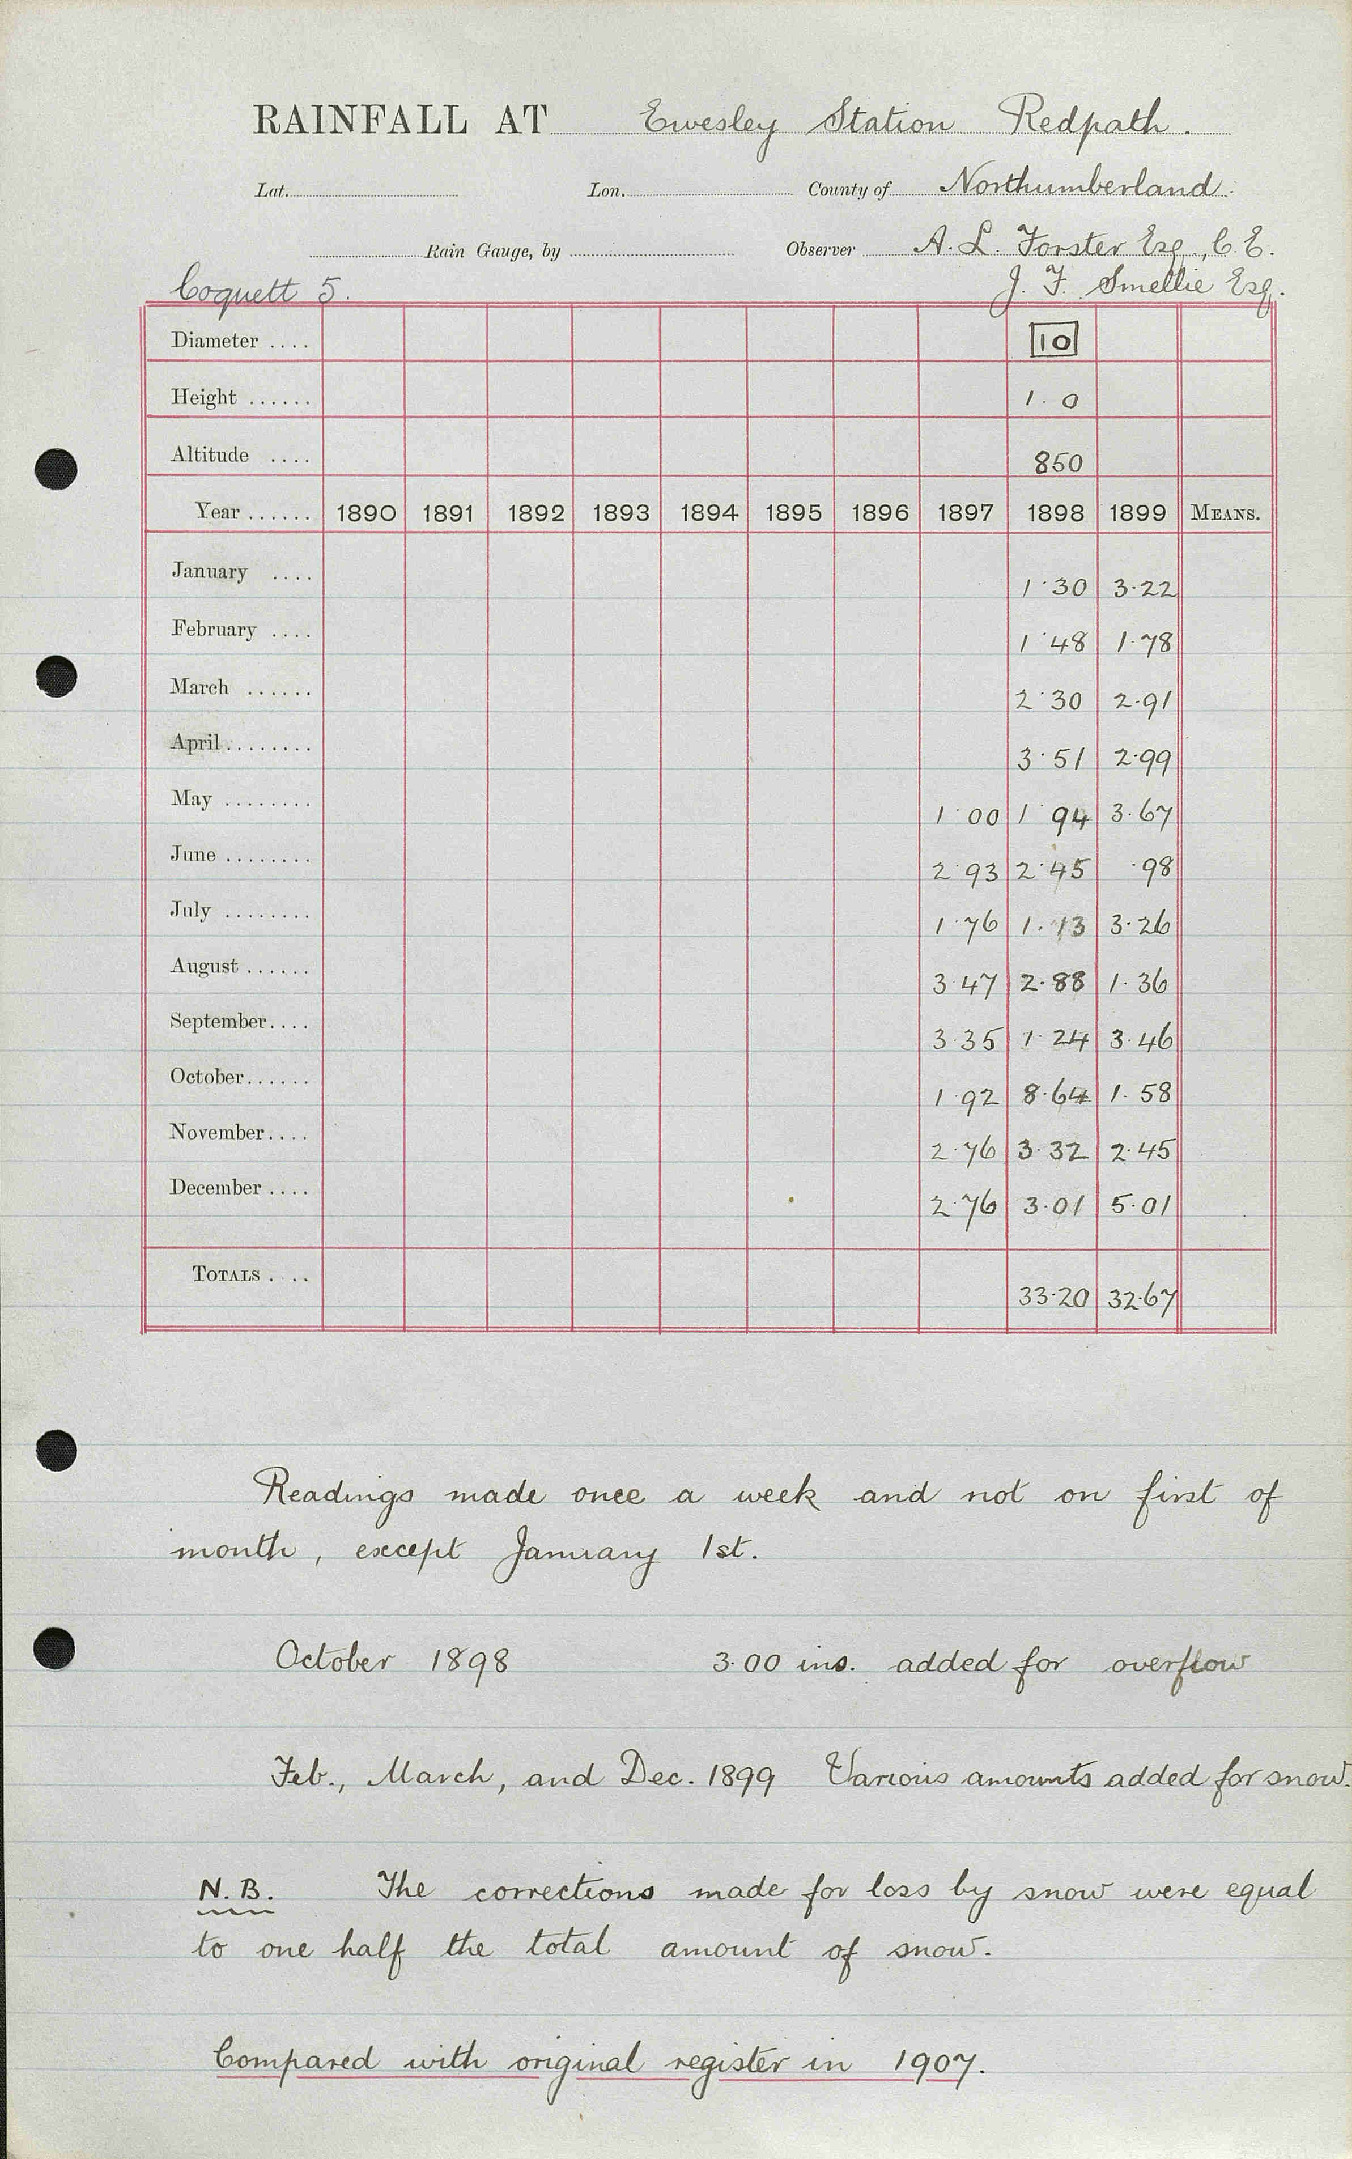 RAINFALL AT Ewesley Station Redpath.
Lat. Lon. County of Northumberland.
Rain Gauge, by Observer A. L. Forster Esq., C.E.
Coquett 5. J. F. Smellie Esq.
Diameter .... 10
Height ...... 1 . 0
Altitude .... 850
Year ...... 1890 1891 1892 1893 1894 1895 1896 1897 1898 1899 MEANS.
January .... 1.30 3.22
February .... 1.48 1.78
March ...... 2.30 2.91
April ........ 3.51 2.99
May ........ 1.00 1.94 3.67
June ........ 2.93 2.45 .98
July ........ 1.76 1.13 3.26
August ...... 3.47 2.88 1.36
September .... 3.35 1.24 3.46
October ...... 1.92 8.64 1.58
November .... 2.76 3.32 2.45
December .... 2.76 3.01 5.01
TOTALS . .. 33.20 32.67
Readings made once a week and not on first of
month, except January 1st.
October 1898 3.00 ins. added for overflow
Feb., March, and Dec. 1899 Various amounts added for snow.
N.B. The corrections made for loss by snow were equal
to one half the total amount of snow.
Compared with original register in 1907.